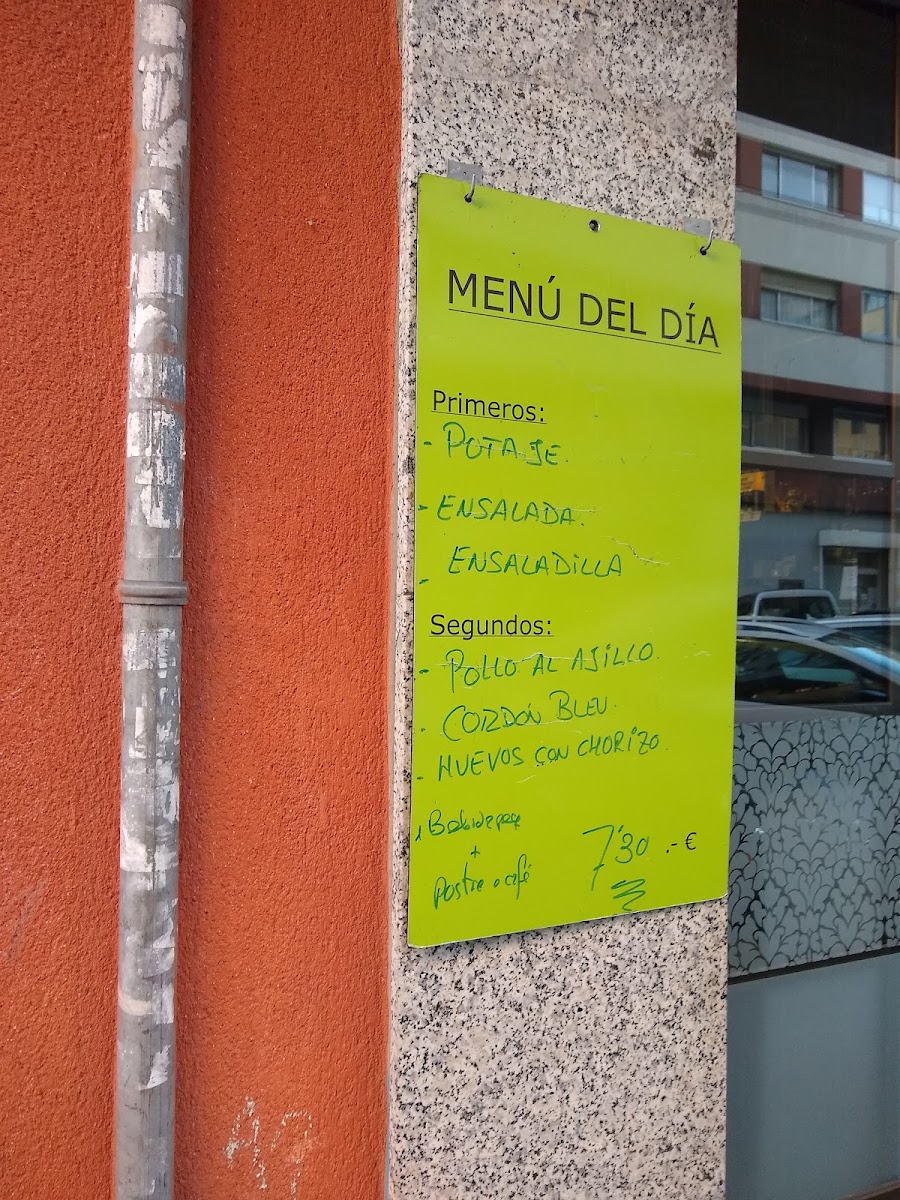 MENÚ DEL DÍA
Primeros:
- POTAJE.
- ENSALADA.
- ENSALADILLA
Segundos:
- POLLO AL AJILLO.
- CORDON BLEU.
- HUEVOS CON CHORIZO.
+
Postre o café
7'30 .- €